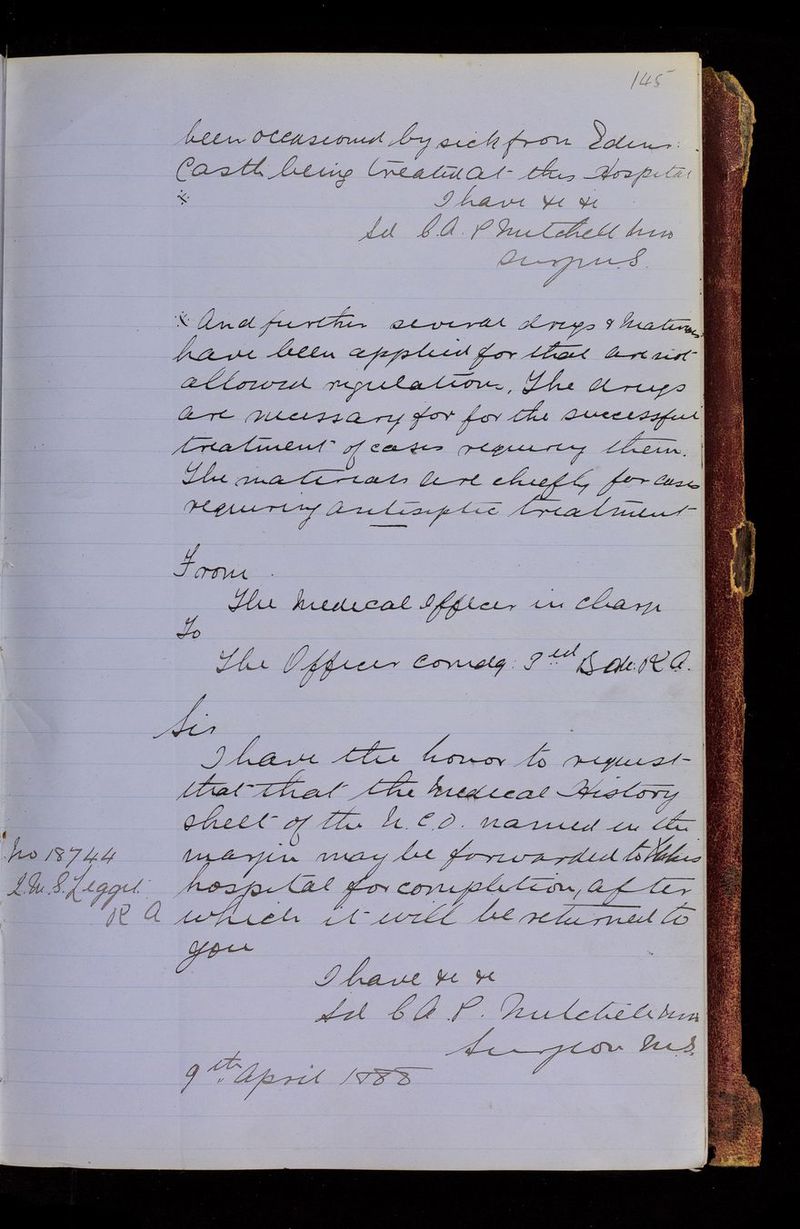 145
been occasioned by sick from Edinr.
Castle being treated at this Hospital
x
I have &c &c
Sd C.A.P. Mitchell
Surgn M.S.
x And further several drugs & Materials
have been applied for that are not
allowed regulation. The drugs
are necessary for for the successful
treatment of cases requiring them.
The materials are chiefly for cases
requiring antiseptic treatment
From
The Medical Officer in charge
To
The Officer Comdg: 3rd Bde: R A.
Sir
I have the honor to request
that that the Medical History
sheet of the N.C.O. named in the
margin may be forwarded to this
No 18744
hospital for completion, after
Q.M.S. Leggit
which it will be returned to
R A
you
I have &c &c
Sd C A P. Mitchell
Surgeon M.S.
9th April 1888